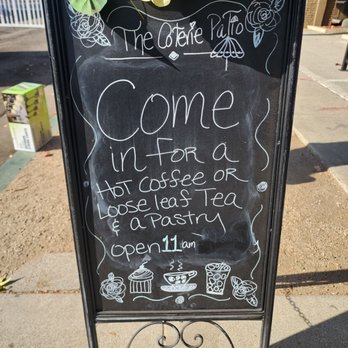 The Coterie Patio
Come
in for a
Hot Coffee or
Loose leaf Tea
& a Pastry
open 11 am